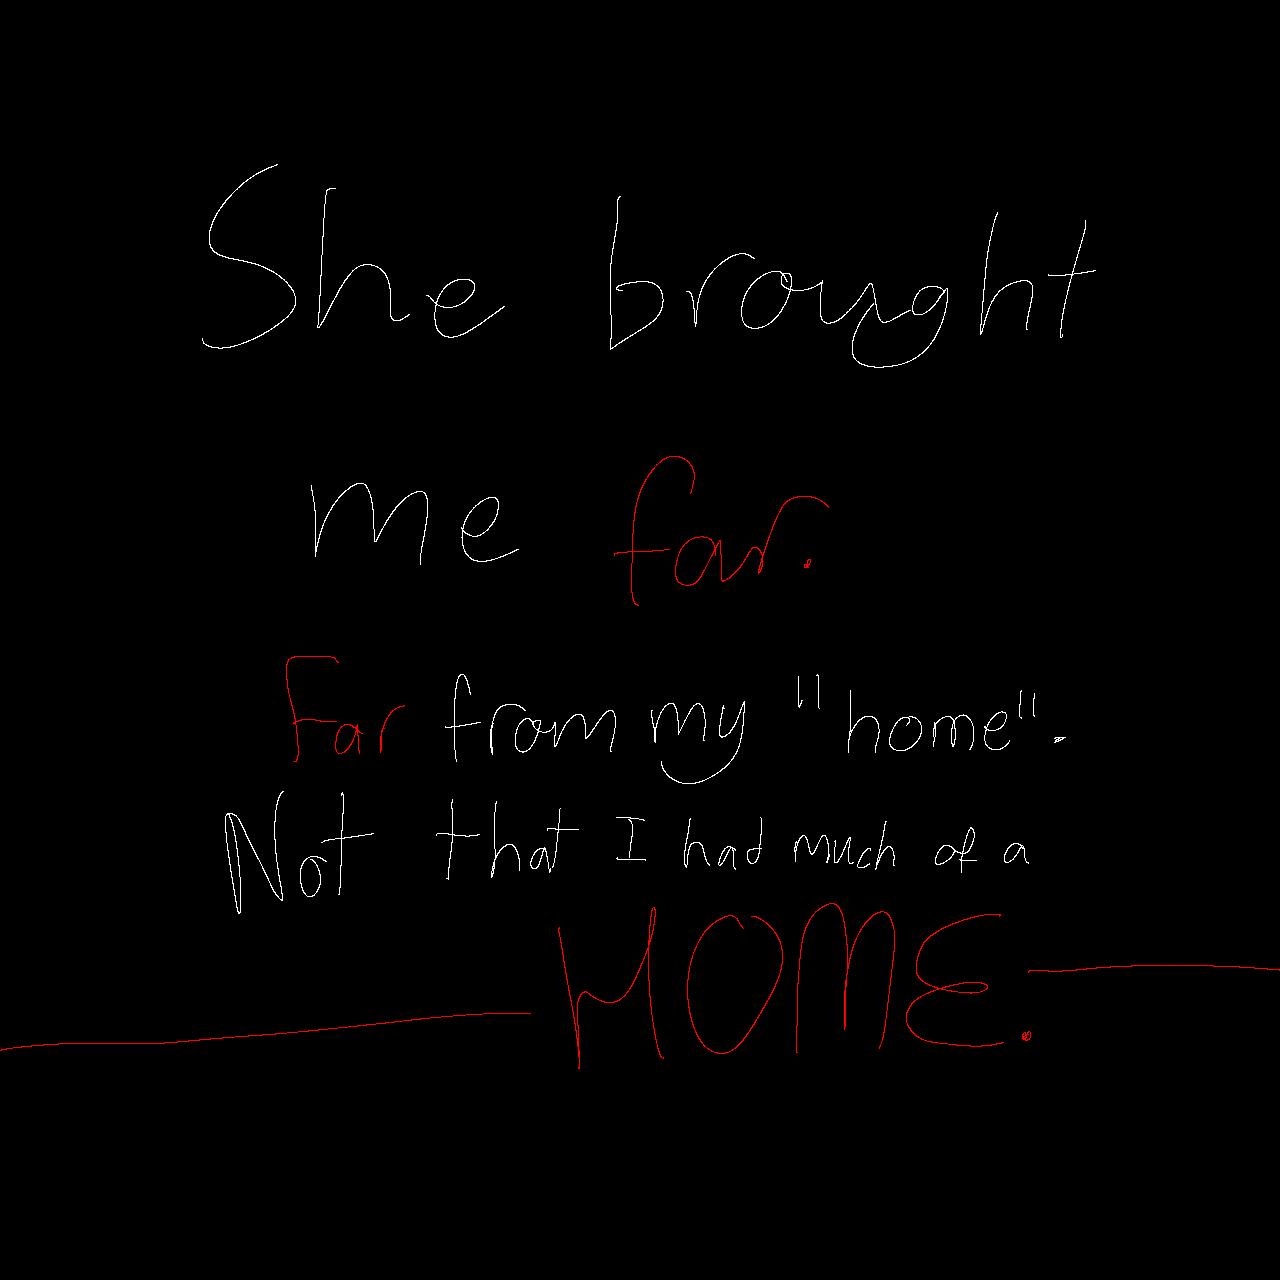 She brought
me far.
Far from my "home".
Not that I had much of a
HOME.